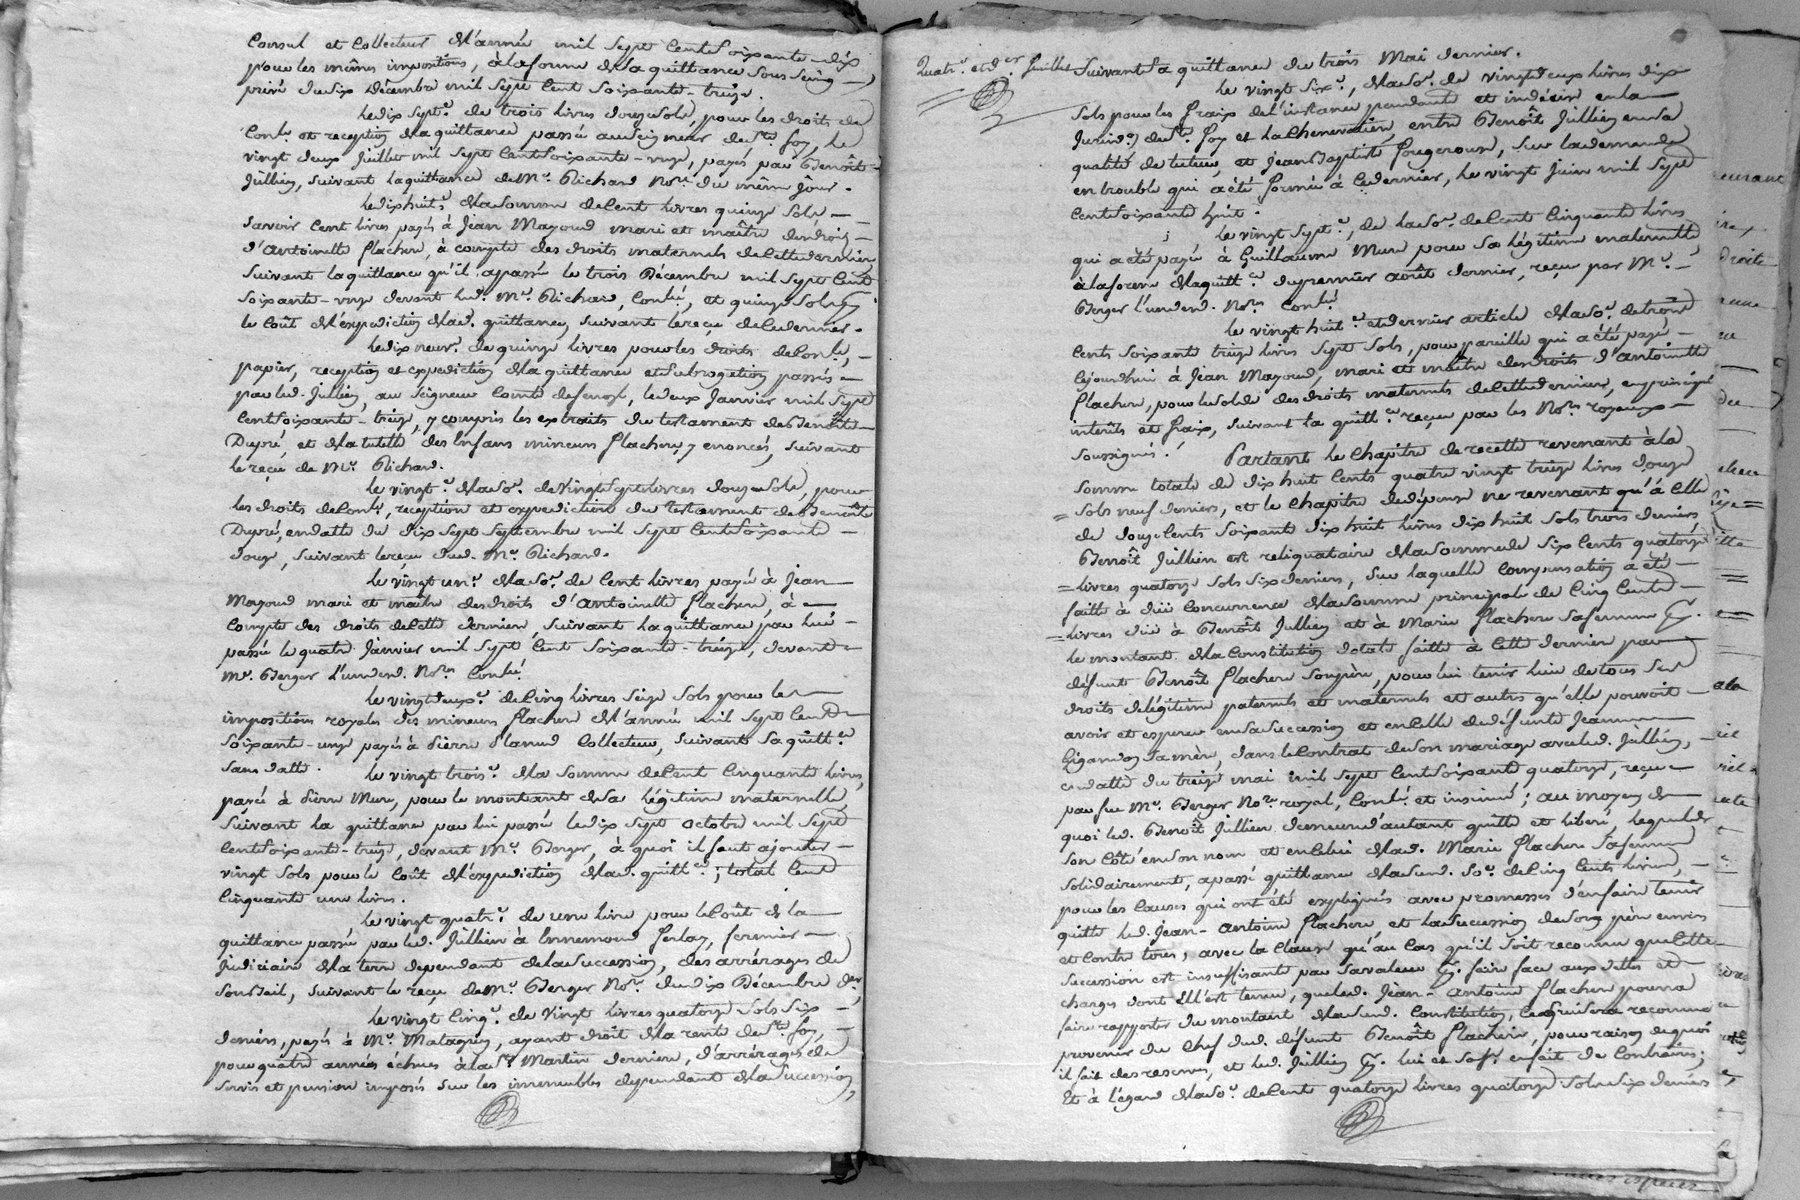 Consul et Collecteur de l'année mil sept Cent soixante-dix
pour les mêmes impositions, à la forme de la quittance sous seing
privé du six Décembre mil sept Cent soixante-treize.
Le dix sept.e de trois livres douze sols, pour les droits de
Con.le et reception de la quittance passée au Seigneur de S.te foy, le
vingt deux Juillet mil sept Cent soixante-onze, payés par Benoît
Jullien, suivant la quittance de M.e Richard No.re du même jour.
Le dix huit.e de la somme de Cent livres quinze sols,
savoir Cent livres payés à Jean Mayoud mari et maître des droits
d'antoinette flachon, à compte des droits maternels de Cette derniere
suivant la quittance qu'il a passée le trois Décembre mil sept Cent
soixante-onze devant led. M.e Richard, Con.lé, et quinze sols p.r
le coût de l'expedition de lad. quittance, suivant le reçu de ce dernier.
Le dix neuv.e de quinze livres pour les droits de Con.le,
papier, reception et expedition de la quittance et subrogation passée
par led. Jullien, au Seigneur Comte de , le deux Janvier mil sept
Cent soixante-treize, y compris les extraits du testament de Benoîte
Dupré, et de la tutelle des Enfans mineurs flachon, y enoncés, suivant
le reçu de M.e Richard.
Le vingt.e de la so.e de vingt sept livres douze sols, pour
les droits de Con.le, réception et expedition du testament de Benoîte
Dupré, en datte du dix sept septembre mil sept Cent soixante
douze, suivant le reçu dud. M.e Richard.
Le vingt un.e de la so.e de Cent livres payée à Jean
Mayoud mari et maître des droits d'antoinette flachon, à
compte des droits de Cette derniere suivant la quittance par lui
passée le quatre Janvier mil sept Cent soixante-treize, devant
M.e Berger l'un desd. No.res Con.lé
Le vingt deux.e de Cinq livres seize sols pour les
impositions royales des mineurs flachon de l'année mil sept Cent
soixante-onze payés à Pierre Planud Collecteur, suivant sa quitt.ce
sans datte.
Le vingt trois.e de la somme de Cent Cinquante livres,
payée à Pierre Mure, pour le montant de sa légitime maternelle,
suivant la quittance par lui passée le dix sept octobre mil sept
Cent soixante-treize, devant M.e Berger, à quoi il faut ajouter
vingt sols pour le Coût de l'expedition de lad. quitt.ce; total Cent
Cinquante une livres.
Le vingt quatr.e de une livre pour le Coût de la
quittance passée par led. Jullien à Ennemond ferlay, fermier
Judiciaire de la terre dependant de la succession, des arrérages de
son bail, suivant le reçu de M.e Berger No.re du dix Décembre der,
Le vingt Cinq.e de vingt livres quatorze sols six
deniers, payés à M.e Matagrin, ayant droit de la rente de S.te foy,
pour quatre années échues à la S.t Martin derniere, d'arrérages de
servis et pension imposés sur les immeubles dependant de la succession,
Quatr.e et d.er feuillet
suivant sa quittance du trois Mai dernier.
Le vingt six.e, de la so.e de vingt deux livres dix
sols pour les fraix de l'instance pendante et indécise en la
Jurisd.on de S.te foy et la Chenevatiere, entre Benoît Jullien en sa
qualité de tuteur, et Jean Baptiste fougerouse, sur la demande
en trouble qui a été formée à ce dernier, le vingt Juin mil sept
Cent soixante huit.
Le vingt sept.e, de la so.e de Cent Cinquante livres
qui a été payée à Guillaume Mure pour sa légitime maternelle
à la forme de la quitt.ce du premier août dernier, reçue par M.e
Berger l'un desd. No.res Con.lé
Le vingt huit.e et dernier article de la so.e de trois
Cents soixante treize livres sept sols, pour pareille qui a été payée
Cejourdhui à Jean Mayoud, mari et maître des droits d'antoinette
flachon, pour le solde des droits maternels de Cette derniere, en principal
interêts et fraix, suivant la quitt.ce reçue par les No.res royaux
soussignés.
Partant le Chapitre de recette revenant à la
somme totale de dix huit Cents quatre vingt treize livres douze
sols neuf deniers, et le Chapitre de dépense ne revenant qu'à Celle
de douze Cents soixante dix huit livres dix huit sols trois deniers
Benoît Jullien est reliquataire de la somme de six Cents quatorze
livres quatorze sols six deniers, sur laquelle Compensation a été
faitte à düe Concurrence de la somme principale de Cinq Cents
livres düe à Benoît Jullien et à Marie flachon sa femme p.r
le montant de la Constitution dotale faitte à Cette derniere par
défunt Benoît flachon son père, pour lui tenir lieu de tous ses
droits de légitime paternels et maternels et autres qu'elle pouvoit
avoir et esperer en sa succession et en Celle de défunte Jeanne
Ligandon sa mère, dans le Contrat de son mariage avec led. Jullien,
en datte du treize mai mil sept Cent soixante quatorze, reçu
par feu M.e Berger No.re royal, Con.lé et insinué; au moyen de
quoi led. Benoît Jullien demeure d'autant quitte et libéré, lequel de
son Côté en son nom et en Celui de lad. Marie flachon sa femme
solidairement, a passé quittance de la susd. so.e de Cinq Cents livres,
pour les Causes qui ont été expliquées avec promesses d'en faire tenir
quitte led. Jean-antoine flachon, et la succession de son père envers
et Contre tous, avec la Clause qu'au Cas qu'il soit reconnu que Cette
succession est insuffisante par sa valeur p.r faire face aux dettes et
charges dont Elle est tenue, que led. Jean-antoine flachon pourra
faire rapporter du montant de la susd. Constitution, Ce qui sera reconnu
provenir du Chef dud. défunt Benoît flachon, pour raison de quoi
il fait des reserves, et led. Jullien p.r lui et sa f.e en fait de Contraires;
Et à l'égard de la so.e de Cent quatorze livres quatorze sols six deniers